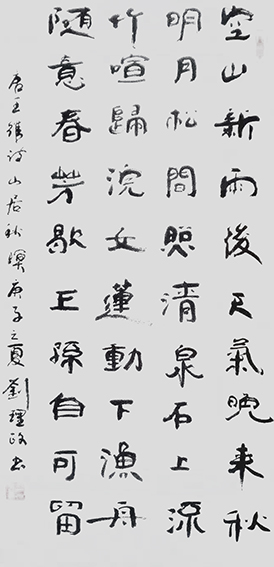 空山新雨後天氣晚來秋
明月松間照清泉石上流
竹喧歸浣女蓮動下漁舟
隨意春芳歇王孫自可留
唐王維詩山居秋暝庚子之夏劉理政書